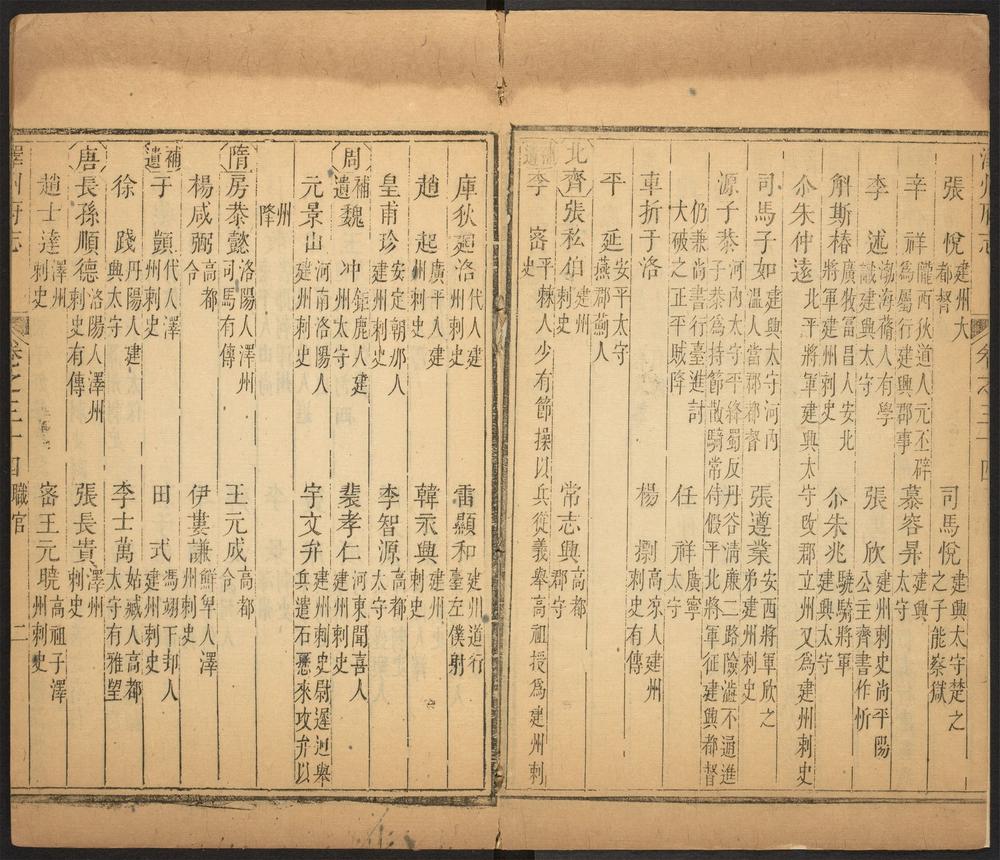 張悅 建州大都督
司馬悅 建興太守楚之之子能察獄
辛祥 隴西狄道人元丕辟為屬行建興郡事
慕容昇 建興太守
李述 渤海蓨人有學識建興太守
張欣 建州刺史尚平陽公主齊書作忻
斛斯椿 廣牧富昌人安北將軍建州刺史
尒朱兆 驍騎將軍建興太守
尒朱仲遠 北平將軍建興太守改郡立州又為建州刺史
司馬子如 建興太守河內溫人當郡都督
張遵業 安西將軍欣之弟建州刺史
源子恭 河內太守平絳蜀反丹谷清廉二路險澁不通進子恭為持節散騎常侍假平北將軍征建興都督
仍兼尚書行臺進討大破之正平賊降
任祥 廣寧太守
車折于洛
楊㯹 高凉人建州刺史有傳
平延 安平太守燕郡薊人
北齊 張私伯 建州刺史
常志興 高都郡守
補遺 李密 平棘人少有節操以兵從義舉高祖授為建州刺史
庫狄迴洛 代人建州刺史
雷顯和 建州道行臺左僕射
趙起 廣平人建州刺史
韓永興 建州刺史
皇甫珍 安定朝那人建州刺史
李智源 高都太守
周 補遺 魏冲 鉅鹿人建州太守
裴孝仁 河東聞喜人建州刺史
元景山 河南洛陽人建州刺史
宇文弁 建州刺史尉遲迥舉兵遣石愻來攻弁以州降
隋 房恭懿 洛陽人澤州司馬有傳
王元成 高都令
楊咸弼 高都令
伊婁謙 鮮卑人澤州刺史
補遺 于顗 代人澤州刺史
田式 馮翊下邽人建州刺史
徐踐 丹陽人建興太守
李士萬 姑臧人高都太守有雅望
唐 長孫順德 洛陽人澤州刺史有傳
張長貴 澤州刺史
趙士達 澤州刺史
密王元曉 高祖子澤州刺史
澤州府志 卷之三十四 職官 二